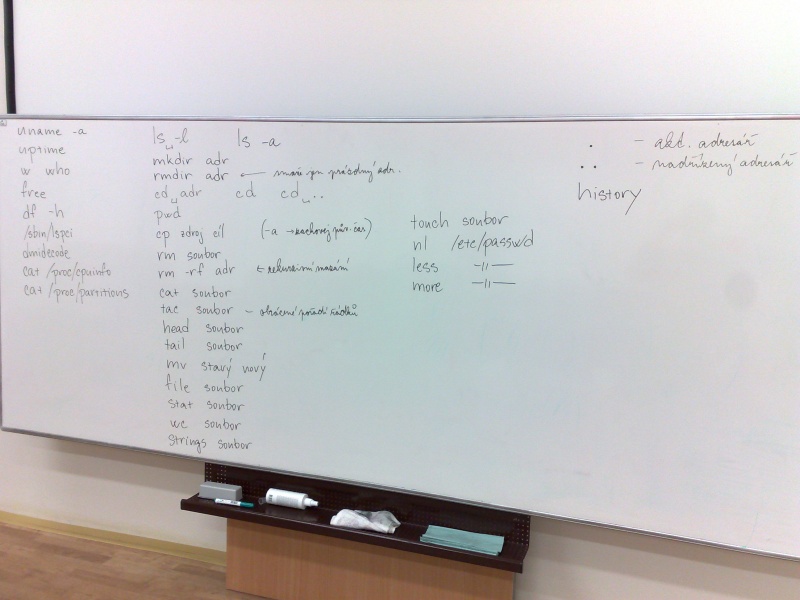 uname -a
uptime
w who
free
df -h
/sbin/lspci
dmidecode
cat /proc/cpuinfo
cat /proc/partitions
ls␣-l ls -a
mkdir adr
rmdir adr ← smaže jen prázdný adr.
cd␣adr cd cd␣..
pwd
cp zdroj cíl (-a → zachovej pův. čas)
rm soubor
rm -rf adr ← rekurzivní mazání
cat soubor
tac soubor - obrácené pořadí řádků
head soubor
tail soubor
mv starý nový
file soubor
stat soubor
wc soubor
strings soubor
touch soubor
nl /etc/passwd
less -11-
more -11-
. - akt. adresář
.. - nadřízený adresář
history